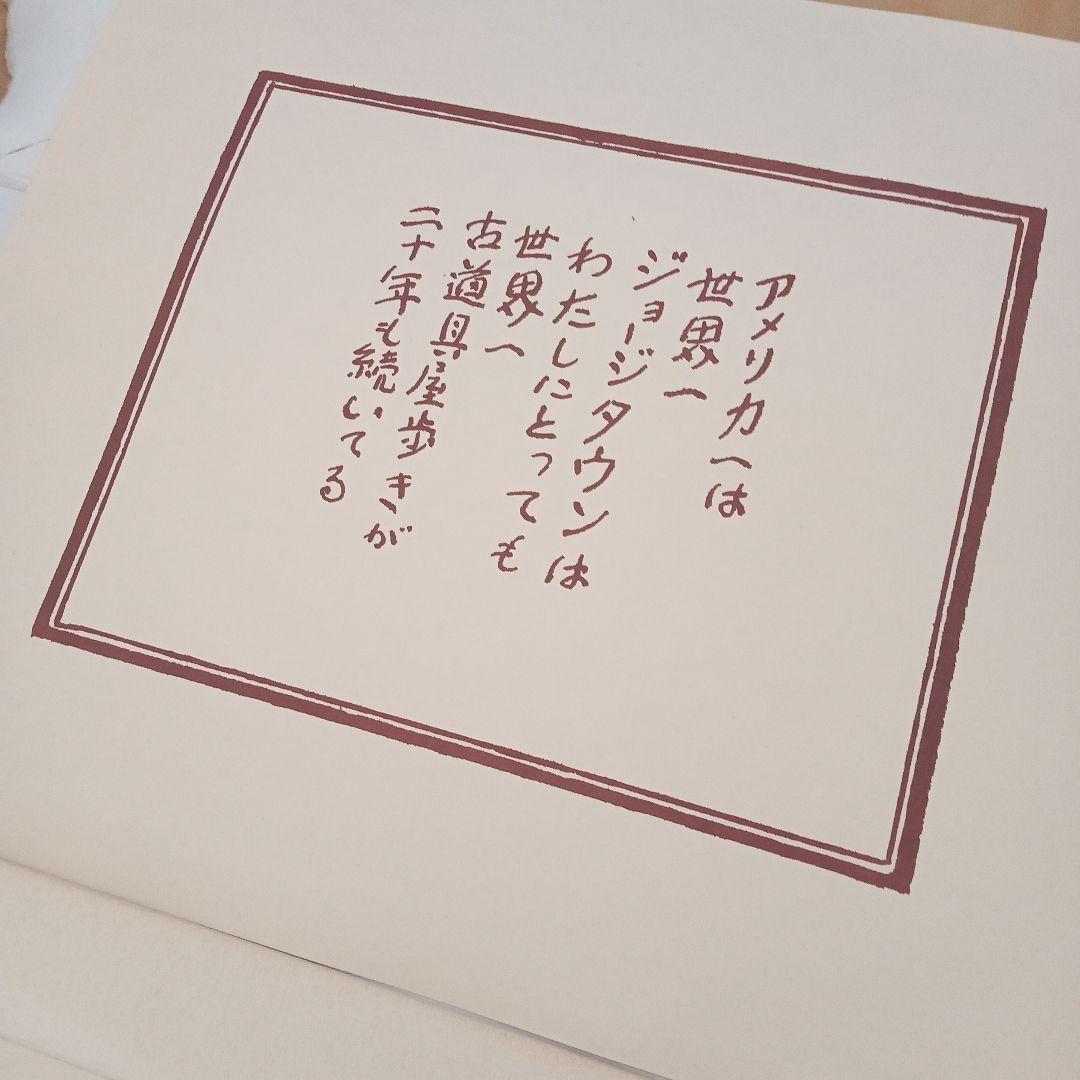 アメリカへは
世界へ
ジョージタウンは
わたしにとっても
世界へ
古道具屋歩きが
二十年も続いてる